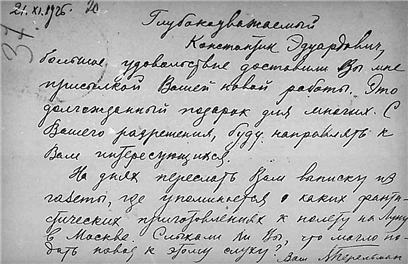 21.XI.1926. 20
37.
Глубокоуважаемый
Константин Эдуардович,
большое удовольствие доставили Вы мне
присылкой Вашей новой работы. Это
долгожданный подарок для многих. С
Вашего разрешения, буду направлять к
Вам интересующихся.
На днях переслать Вам выписку из
газеты, где упоминается о каких фанта-
стических приготовлениях к полету на Луну
в Москве. Слыхали ли Вы, что могло по-
дать повод к этому слуху? Ваш Перельман